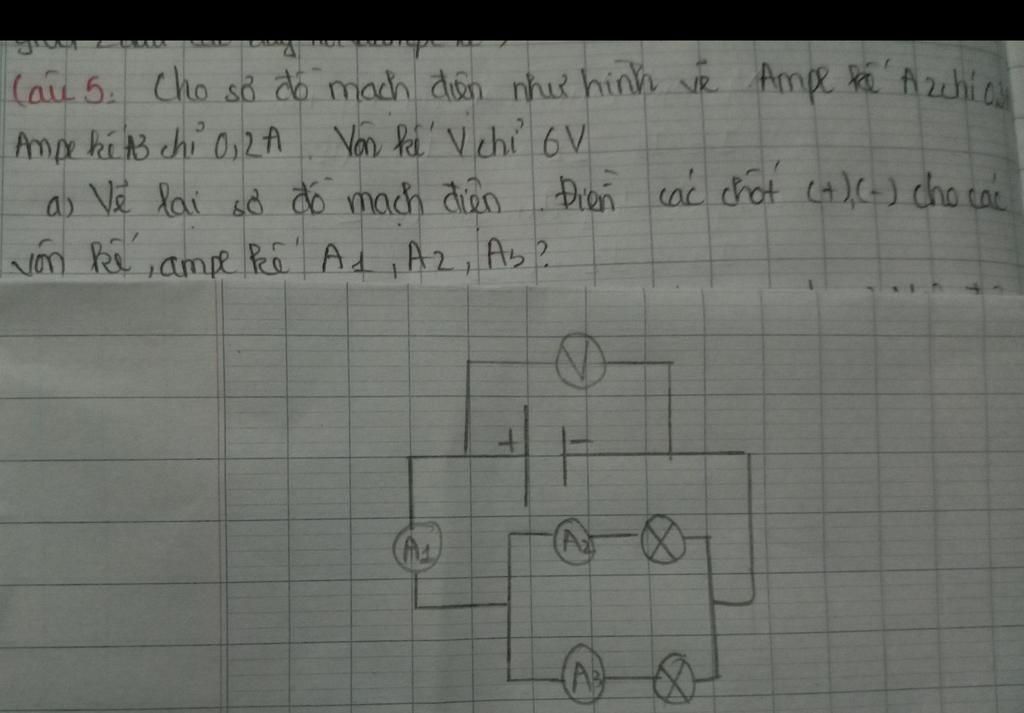 Câu 5. Cho sơ đồ mạch điện như hình vẽ Ampe kế A2 chỉ
Ampe kế A3 chỉ 0,2A Vôn kế V chỉ 6V
a) Vẽ lại sơ đồ mạch điện. Điền các chốt (+),(-) cho các
vôn kế, ampe kế A1, A2, A3?
V
+ -
A1 A2
A3